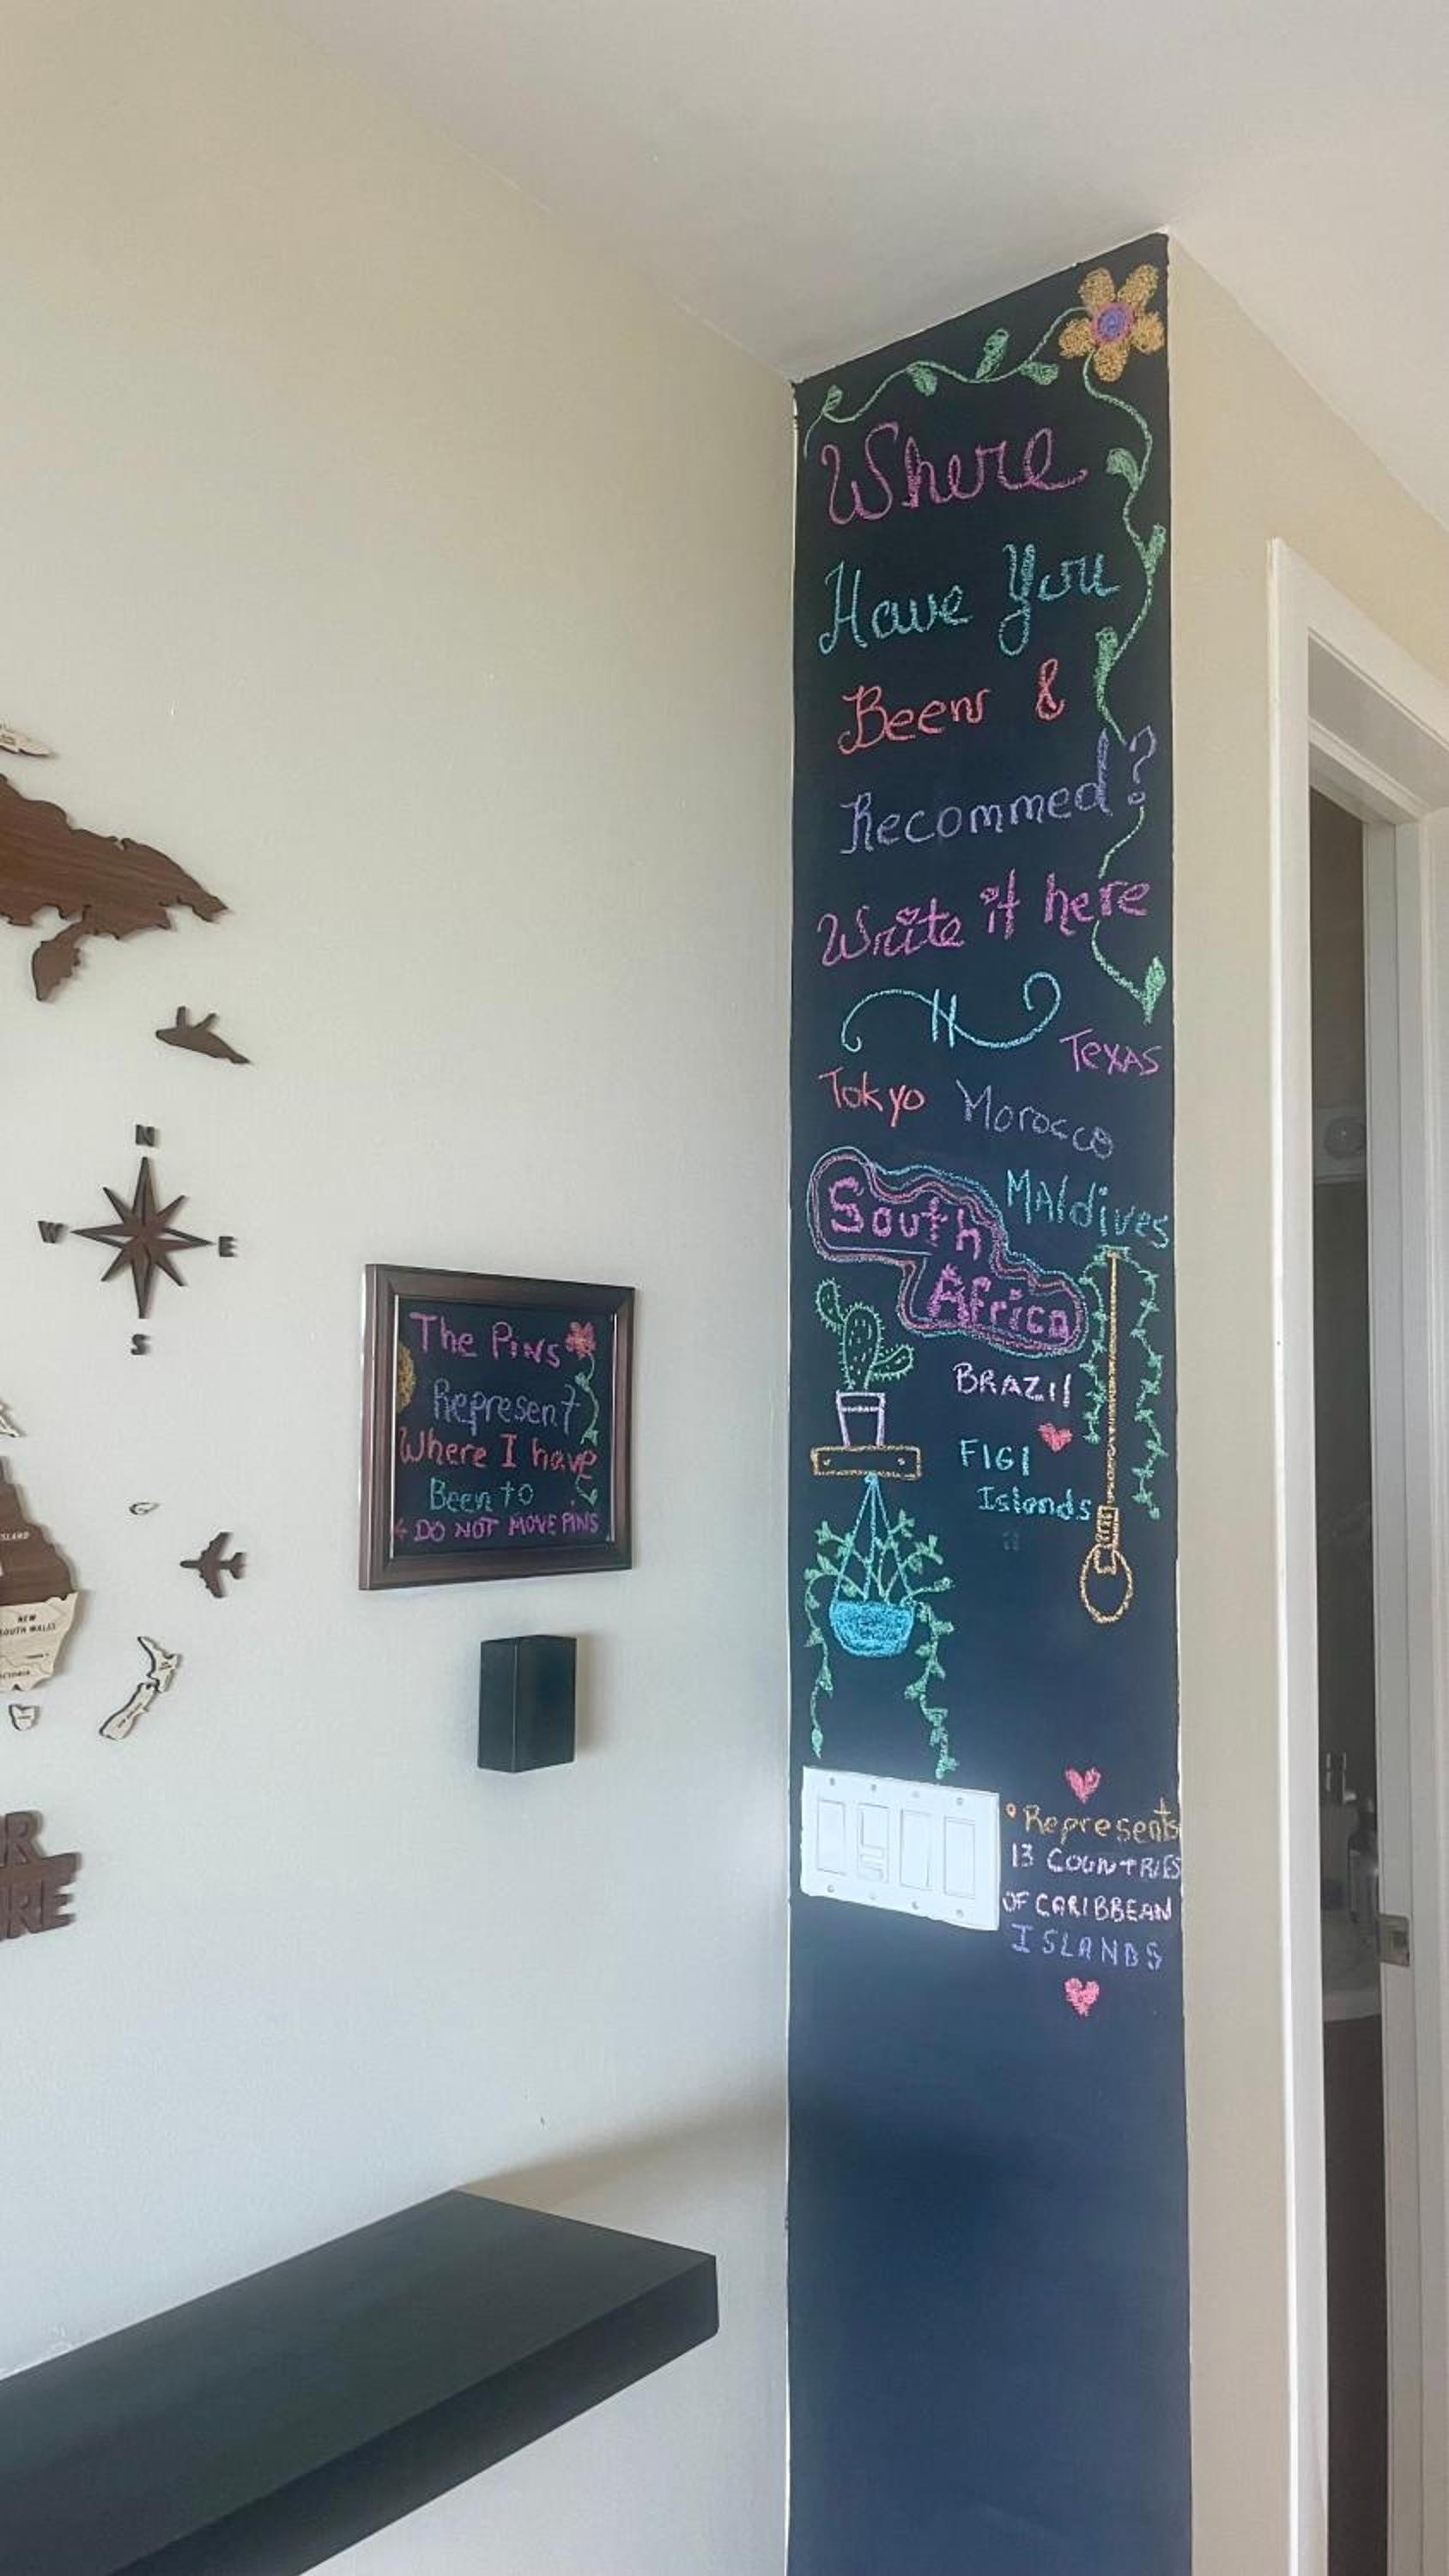 Where
Have You
Been &
Recommed?
Write it here
Texas
Tokyo Morocco
MAldives
South
Africa
BRAZIl
FIGI
Islands
Represents
13 COUNTRIES
OF CARIBBEAN
ISLANDS
The Pins
Represent
Where I have
Been to
DO NOT MOVE PINS
N
W E
S
NEW
SOUTH WALES